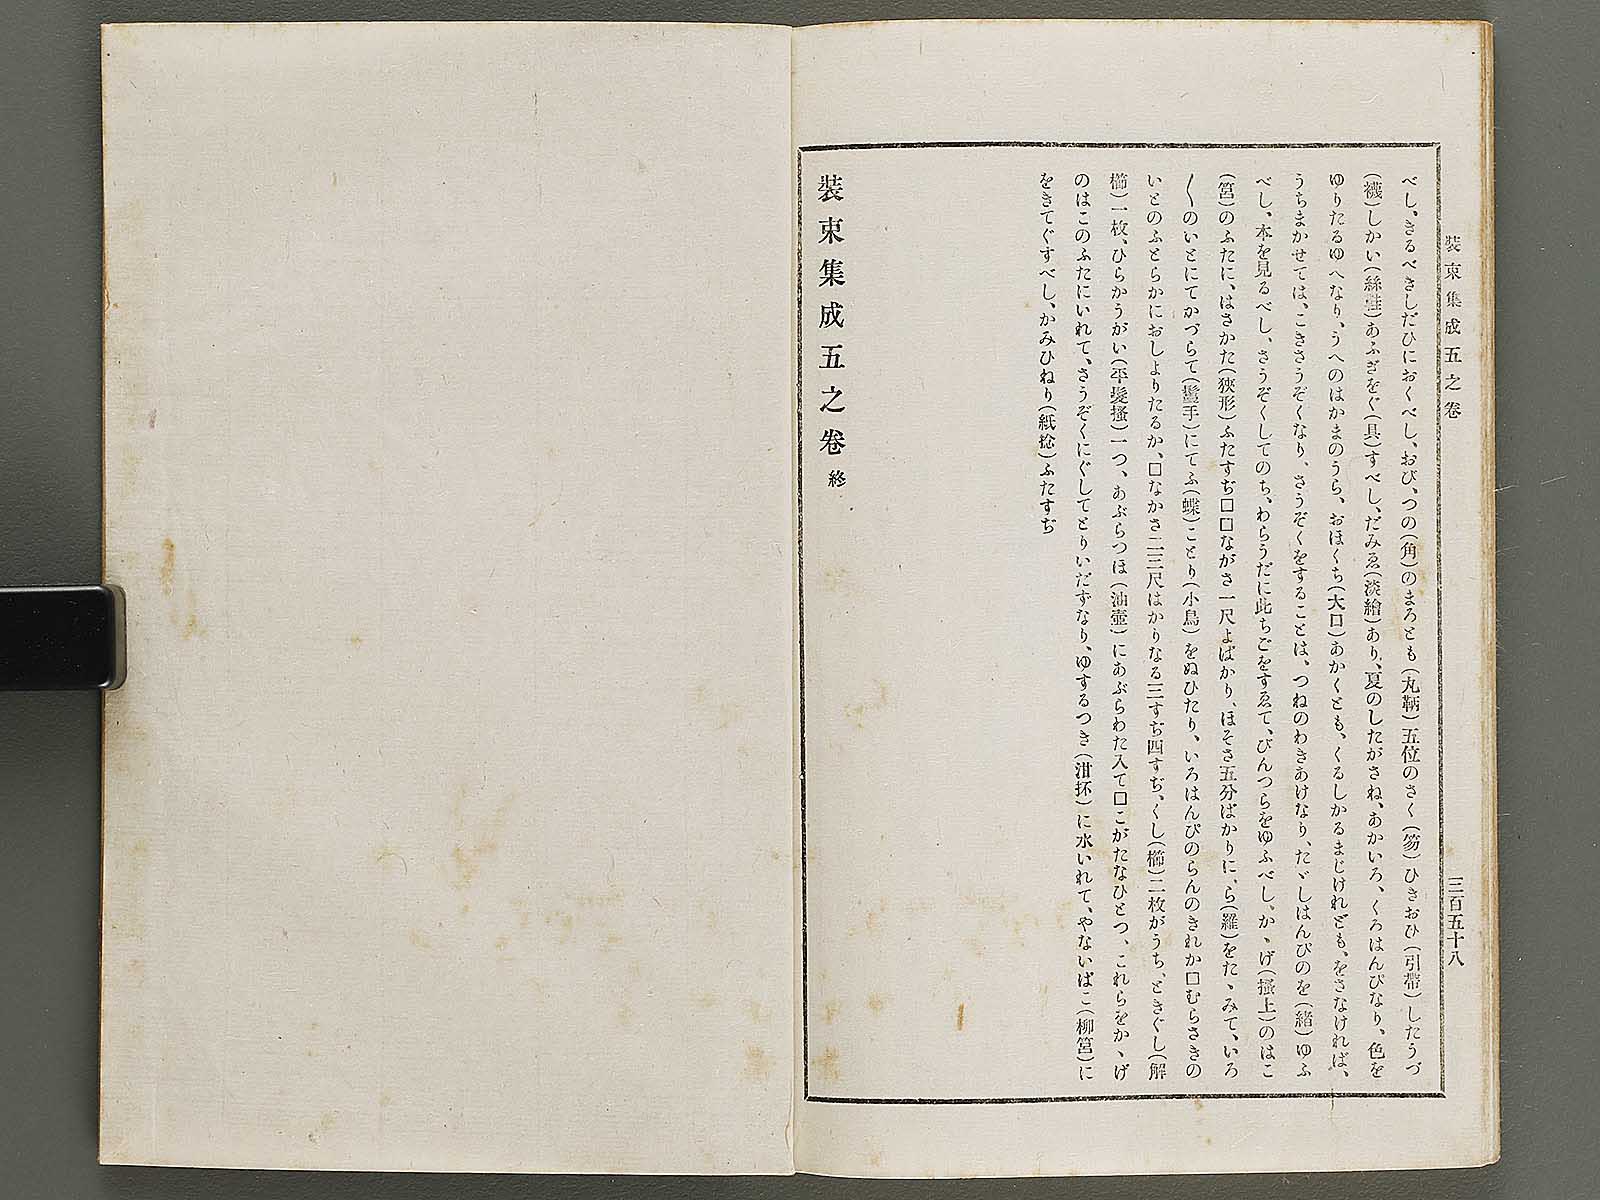 装束集成五之卷
三百五十八
べし、きるべきしだひにおくべし、おび、つの(角)のまろとも(丸鞆)五位のさく(笏)ひきおひ(引帶)したうづ
(襪)しかい(絲鞋)あふぎをぐ(具)すべし、だみゑ(淡繪)あり、夏のしたがさね、あかいろ、くろはんぴなり、色を
ゆりたるゆへなり、うへのはかまのうら、おほくち(大口)あかくとも、くるしかるまじけれども、をさなければ、
うちまかせては、こきさうぞくなり、さうぞくをすることは、つねのわきあけなり、たゞしはんぴのを(緒)ゆふ
べし、本を見るべし、さうぞくしてのち、わらうだに此ちごをすゑて、びんつらをゆふべし、かゝげ(搔上)のはこ
(筥)のふたに、はさかた(狹形)ふたすぢ□□ながさ一尺よばかり、ほそさ五分ばかりに、ら(羅)をたゝみて、いろ
〱のいとにてかづらて(鬘手)にてふ(蝶)ことり(小鳥)をぬひたり、いろはんぴのらんのきれか□むらさきの
いとのふとらかにおしよりたるか、□なかさ二三尺はかりなる三すぢ四すぢ、くし(櫛)二枚がうち、ときぐし(解
櫛)一枚、ひらかうがい(平髮搔)一つ、あぶらつほ(油壷)にあぶらわた入て□こがたなひとつ、これらをかゝげ
のはこのふたにいれて、さうぞくにぐしてとりいだすなり、ゆするつき(泔抔)に水いれて、やないばこ(柳筥)に
をきてぐすべし、かみひねり(紙捻)ふたすぢ
装束集成五之卷終